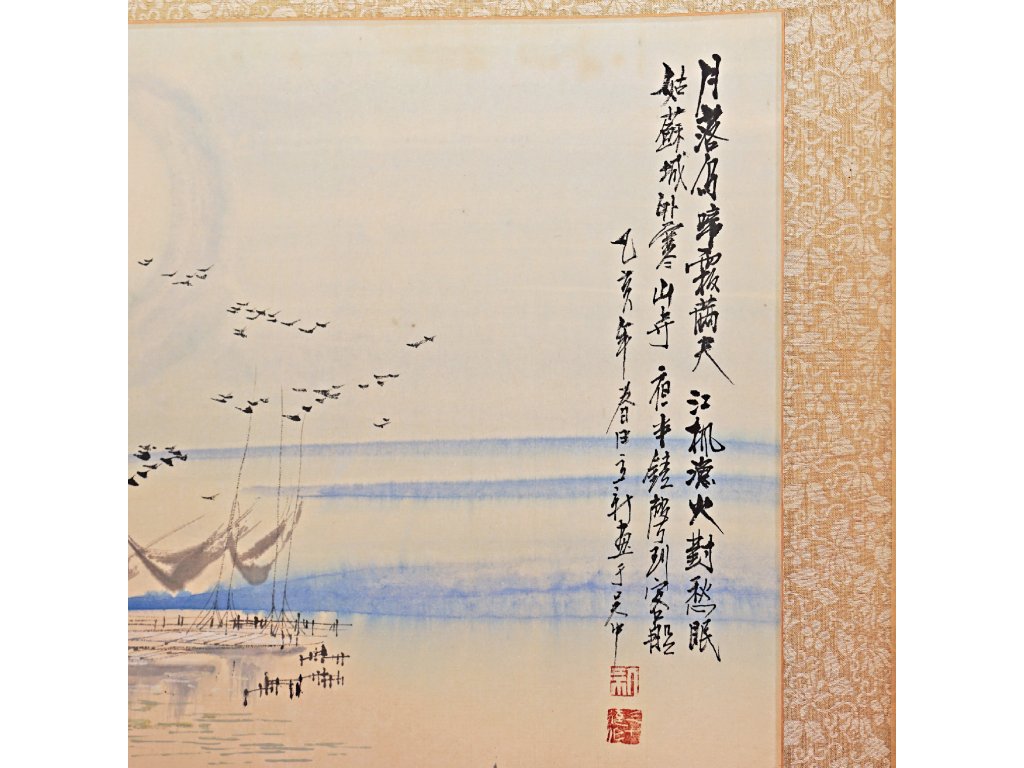 月落烏啼霜滿天 江楓漁火對愁眠
姑蘇城外寒山寺 夜半鐘聲到客船
乙亥年春日立新畫于吴中